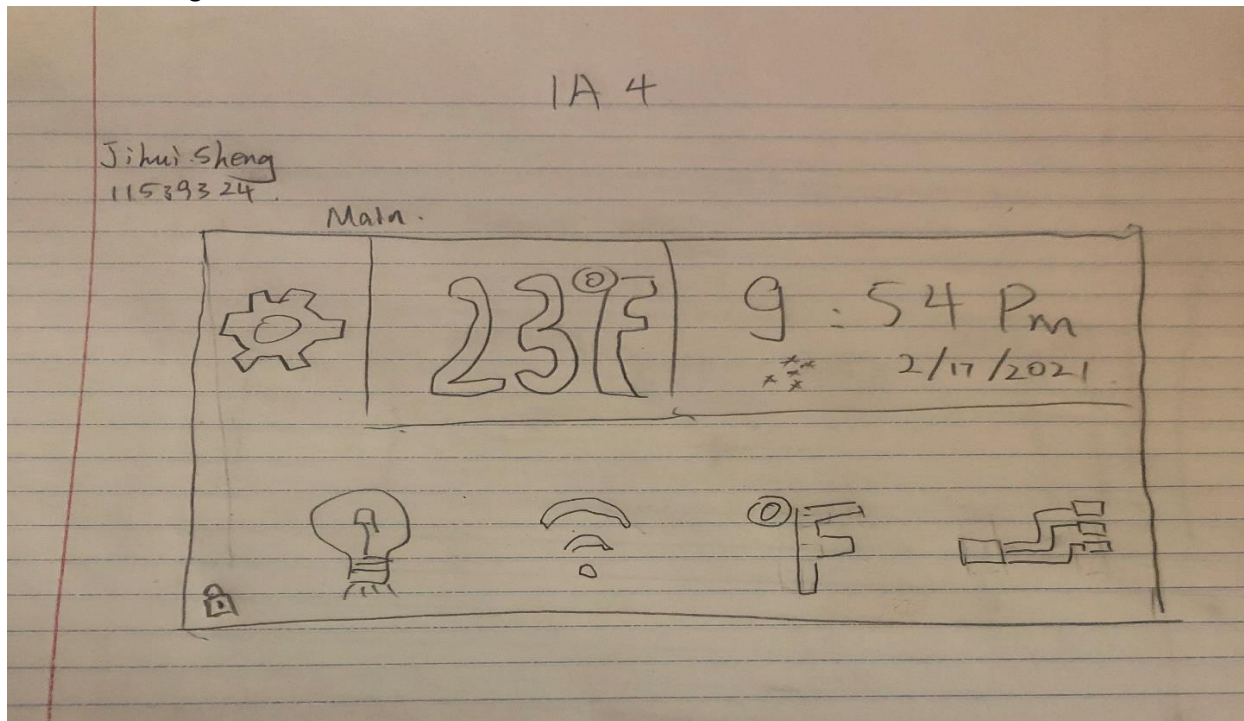 IA 4
Jihui Sheng
11539324
Main.
23°F
9:54 Pm
2/17/2021
°F